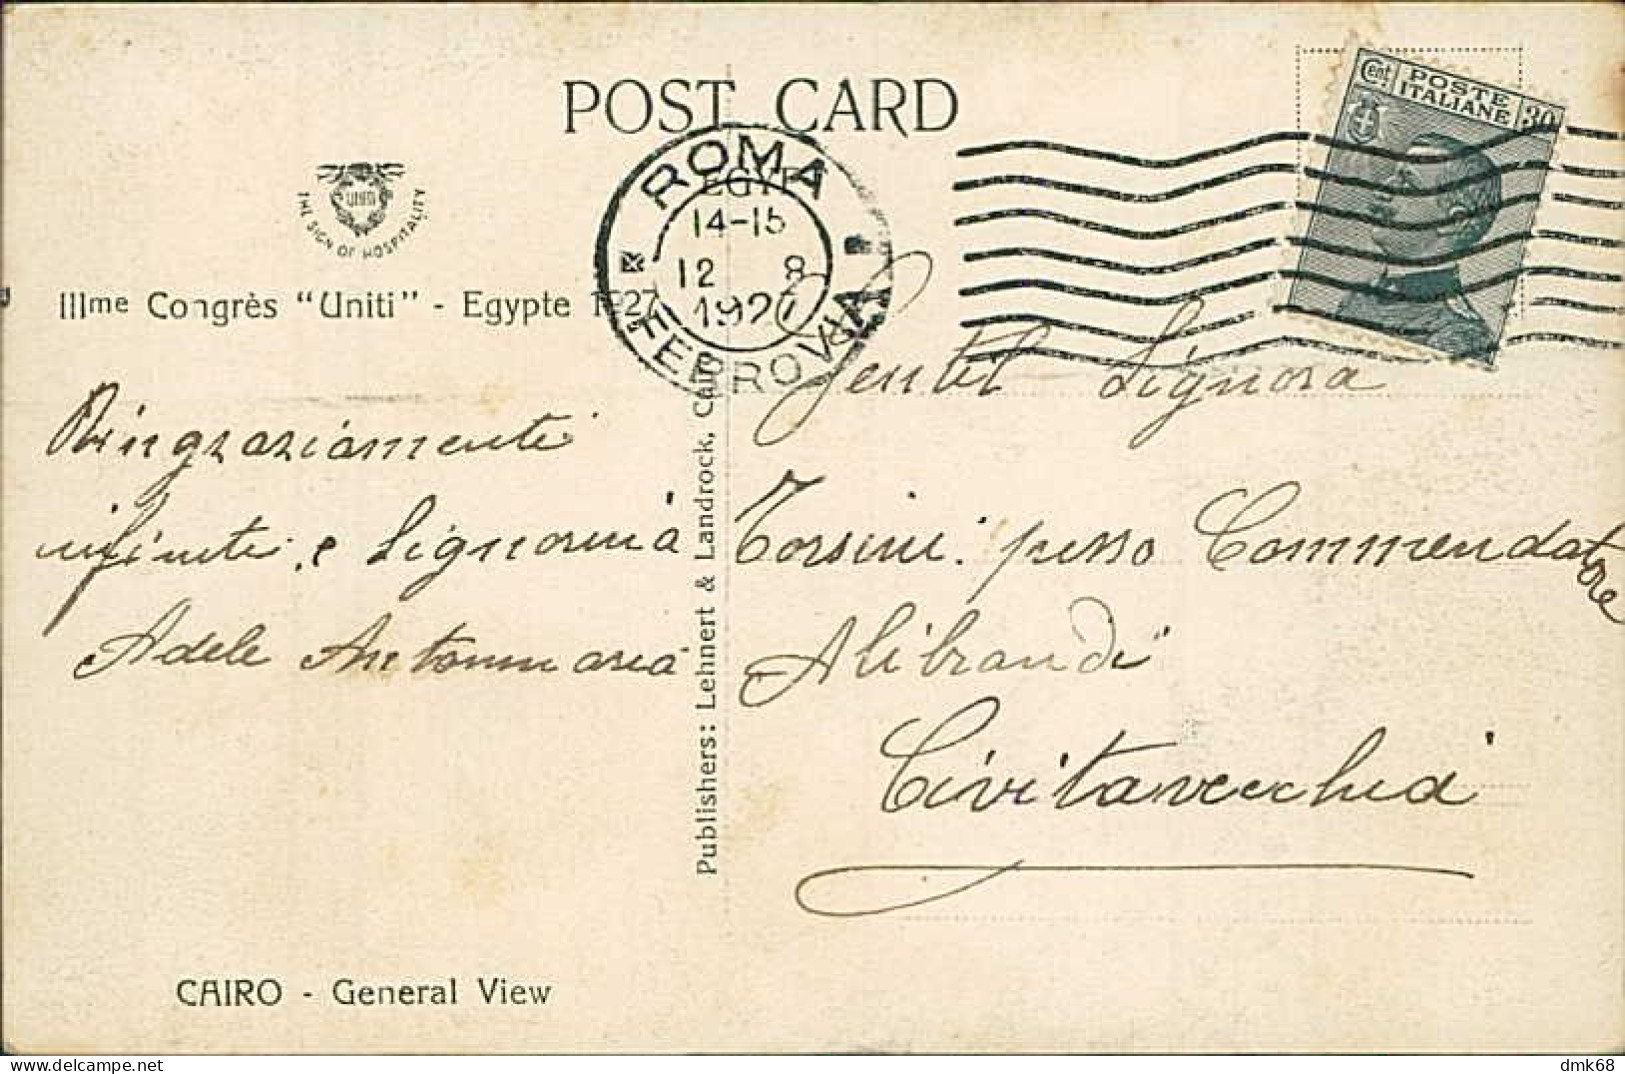 POST CARD
EGYPT
UNITI
THE SIGN OF HOSPITALITY
IIIme Congrès "Uniti" - Egypte 1927
ROMA
14-15
12 8
1927
FERROVIA
Cent POSTE ITALIANE 30
Ringraziamenti
infiniti e Signorina
Adele Antonmaria
Publishers: Lehnert & Landrock, Cairo
Gentil Signora
Torsini presso Commendatore
Alibrandi
Civitavecchia
CAIRO - General View
dmk68